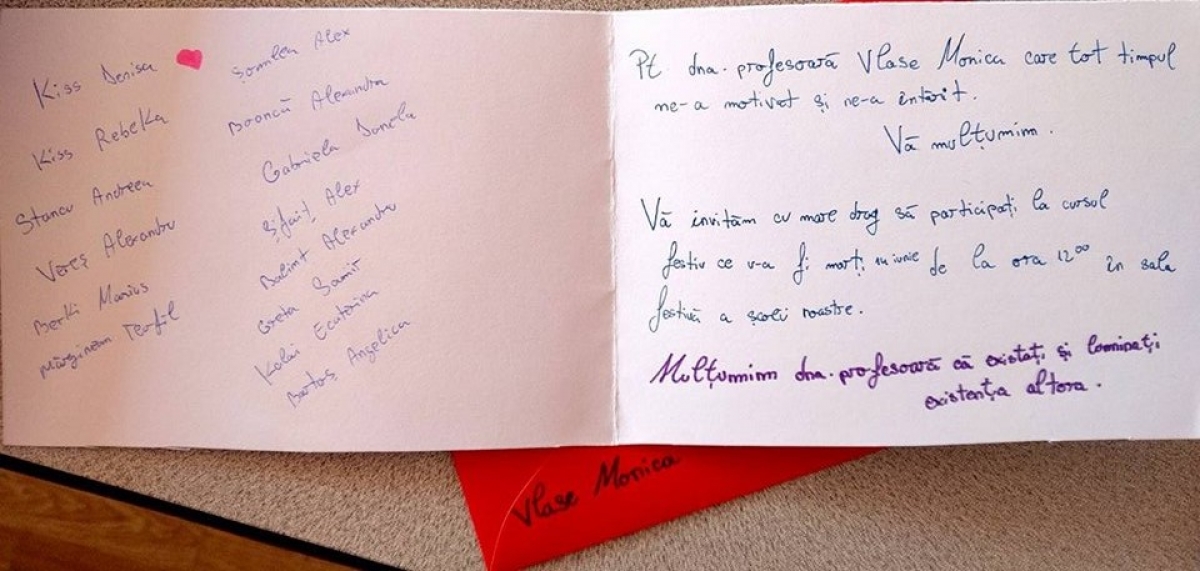 Kiss Denisa
Kiss Rebeka
Stancu Andreea
Vereș Alexandru
Berki Marius
Mărginean Teofil
Șomlea Alex
Alexandra
Gabriela Donela
Alex
Balint Alexandru
Greta
Ecaterina
Bartoș Angelica
Pt. dna. profesoară Vlase Monica care tot timpul
ne-a motivat și ne-a întărit.
Vă mulțumim.
Vă invităm cu mare drag să participați la cursul
festiv ce v-a fi marți, iunie de la ora 12⁰⁰ în sala
festivă a școlii noastre.
Mulțumim dna. profesoară că existați și luminați
existența altora.
Vlase Monica